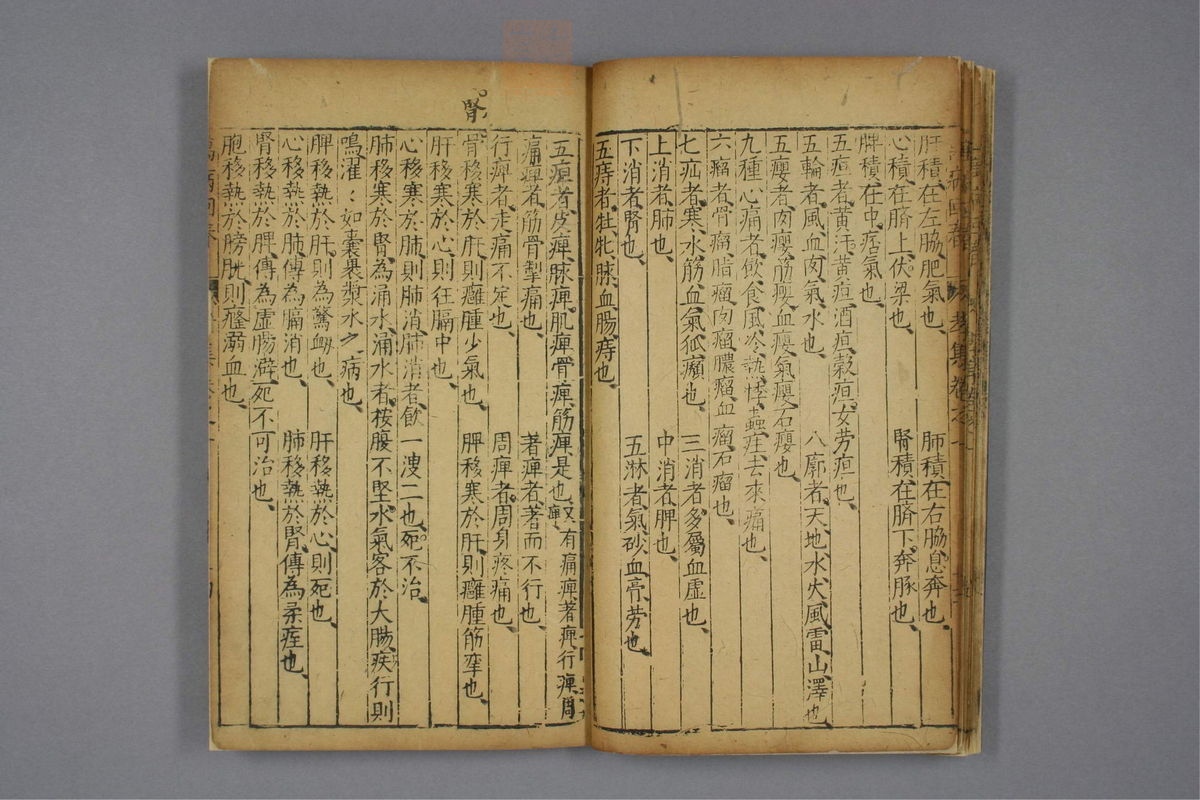 肝積、在左脇、肥氣也、 肺積、在右脇、息奔也、
心積、在臍上、伏梁也、 腎積、在臍下、奔豚也、
脾積、在中、痞氣也、
五疸者、黃汗、黃疸、酒疸、穀疸、女勞疸也、
五輪者、風血肉氣水也、 八廓者、天地水火風雷山澤也、
五癭者、肉癭、筋癭、血癭、氣癭、石癭也、
九種心痛者、飲食風冷熱悸蟲疰去來痛也、
六瘤者、骨瘤、脂瘤、肉瘤、膿瘤、血瘤、石瘤也、
七疝者、寒水筋血氣狐㿗也、 三消者、多屬血虛也、
上消者肺也、 中消者脾也、
下消者腎也、 五淋者、氣砂血膏勞也、
五痔者、牡牝脉血腸痔也、
腎
五痺者、皮痺脉痺肌痺骨痺筋痺是也、又有痛痺著痺行痺周痺
痛痺者、筋骨掣痛也、 著痺者、著而不行也、
行痺者、走痛不定也、 周痺者、周身疼痛也、
骨移寒於肝、則癰腫少氣也、 脾移寒於肝、則癰腫筋攣也、
肝移寒於心、則狂膈中也、
心移寒於肺、則肺消、肺消者、飲一溲二也、死不治、
肺移寒於腎、為涌水、涌水者、按腹不堅、水氣客於大腸、疾行則
鳴濯〻如囊裹漿水之病也、
脾移熱於肝、則為驚衂也、 肝移熱於心、則死也、
心移熱於肺、傳為膈消也、 肺移熱於腎、傳為柔痓也、
腎移熱於脾、傳為虛腸澼、死不可治也、
胞移熱於膀胱、則癃溺血也、